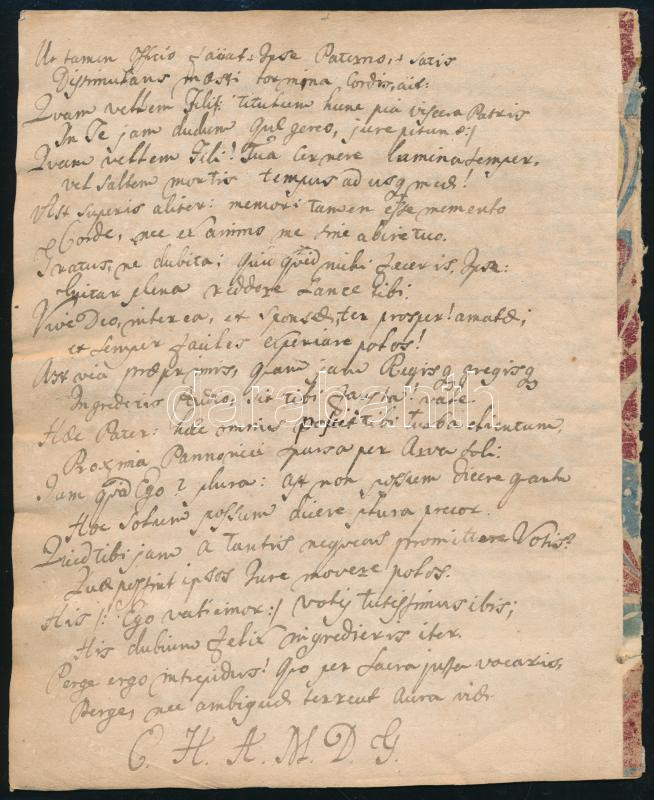 Ut tamen Officio faūat Ipse Paterno, & satis
Dissimulans mæsti tormina Cordis, ait:
Quam vellem Fili titulum hunc pia viscera Patris
In Te jam dudum qui gero, jure
Quam vellem Fili! Tua Cernere lumina semper,
vel saltem mortis tempus ad usq meæ!
Ast superis aliter: memori tamen esse memento
Corde, nec ex animo me sine abire tuo.
Gratus, ne dubita; quid quid mihi feceris, Ipse:
plena reddore Lance tibi.
Vive Deo, interea, et Sponsæ, ter prosper! amatæ;
et semper faciles experiare polos!
Ast via præprimis, quam jam Regisq gregisq
Ingrederis studio, sit tibi fausta! vale
Hæc Pater: hæc omnis tibi turba clientum,
Proxima Pannonici sparsa per Arva soli:
Jam quid Ego? plura: ast non possum dicere
Hoc Solum possum dicere plura precor.
Quid tibi jam a tantis nequeas promittere Votis?
Quæ possint ipsos Jure movere polos.
His /: Ego vaticinor :/ votis tutissimus ibis;
His dubium felix ingredieris iter.
Perge ergo intrepidus! Quo per Sacra jussa vocaris,
Perge, nec ambiguæ terreat Aura viæ.
C. H. A. M. D. G.
darabanth